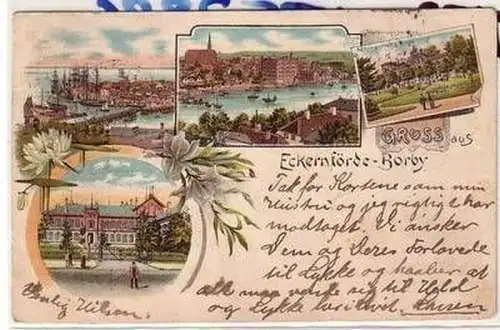 GRUSS aus
Eckernförde-Borby
Tak for Kortene som min
Hustru og jeg rigtigt har
modtaget. Vi ønsker
Dem og Deres forlovede
til Lykke og haaber at
alt maa vende sig til Held
og Lykke